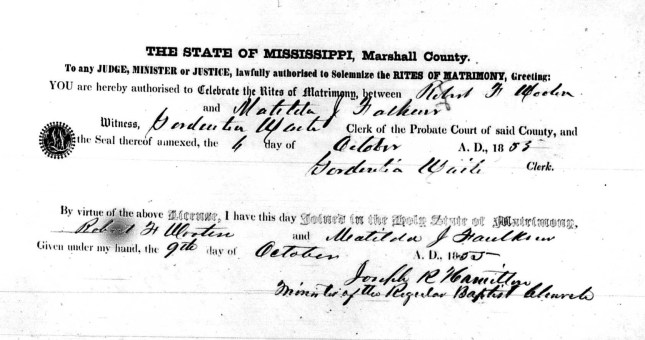 THE STATE OF MISSISSIPPI, Marshall County.
To any JUDGE, MINISTER or JUSTICE, lawfully authorised to Solemnize the RITES OF MATRIMONY, Greeting:
YOU are hereby authorised to Celebrate the Rites of Matrimony, between Robert F Wooten
and Matilda J Falkner
Witness, Gordentia Waite Clerk of the Probate Court of said County, and
the Seal thereof annexed, the 6 day of October A. D., 1855
Gordentia Waite Clerk.
By virtue of the above License, I have this day Joined in the Holy State of Matrimony,
Robert F Wooten and Matilda J Faulkner
Given under my hand, the 9th day of October A. D., 1855
Joseph R Hamilton
Minister of the Regular Baptist Church